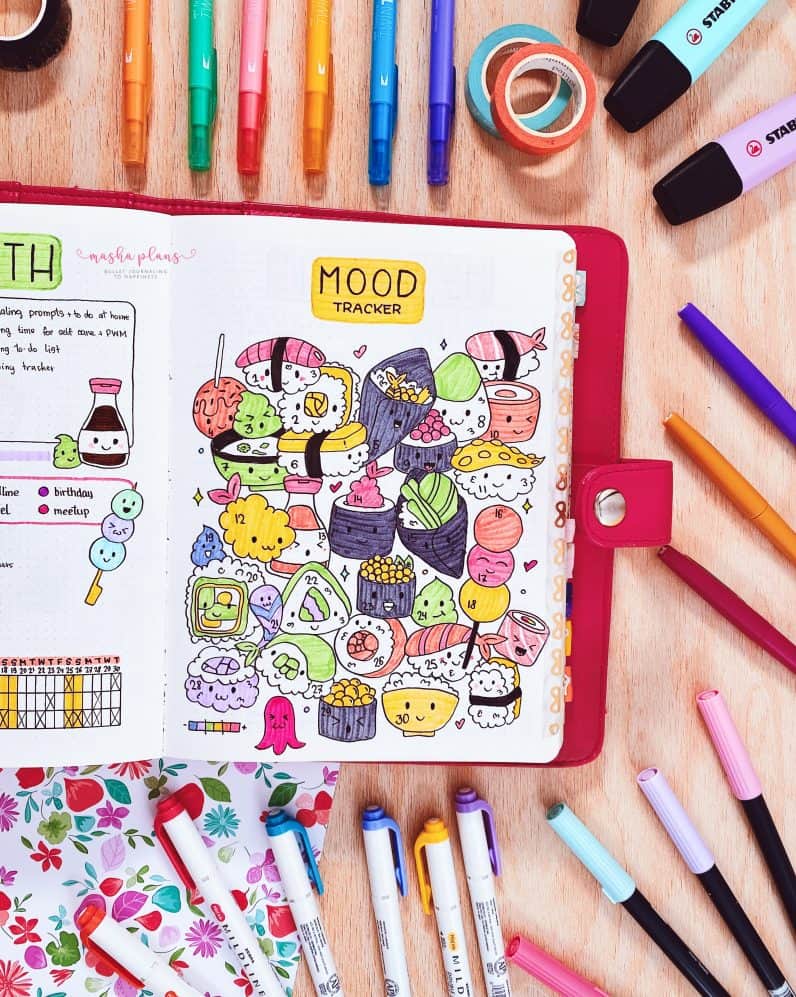 TWIN
TWIN
STAB
STAB
TH
masha plans
BULLET JOURNALING
TO HAPPINESS
MOOD
TRACKER
aling prompts + to do at home
ng time for self care + PWM
ng to-do list
ing tracker
dline birthday
el meetup
S S M T W T F S S M T W T
18 19 20 21 22 23 24 25 26 27 28 29 30
1
2
3
4
5
6
7
10
11
12
13
14
15
16
17
18
19
20
21
22
23
24
25
27
28
29
30
- +
MILDLINER
MILD